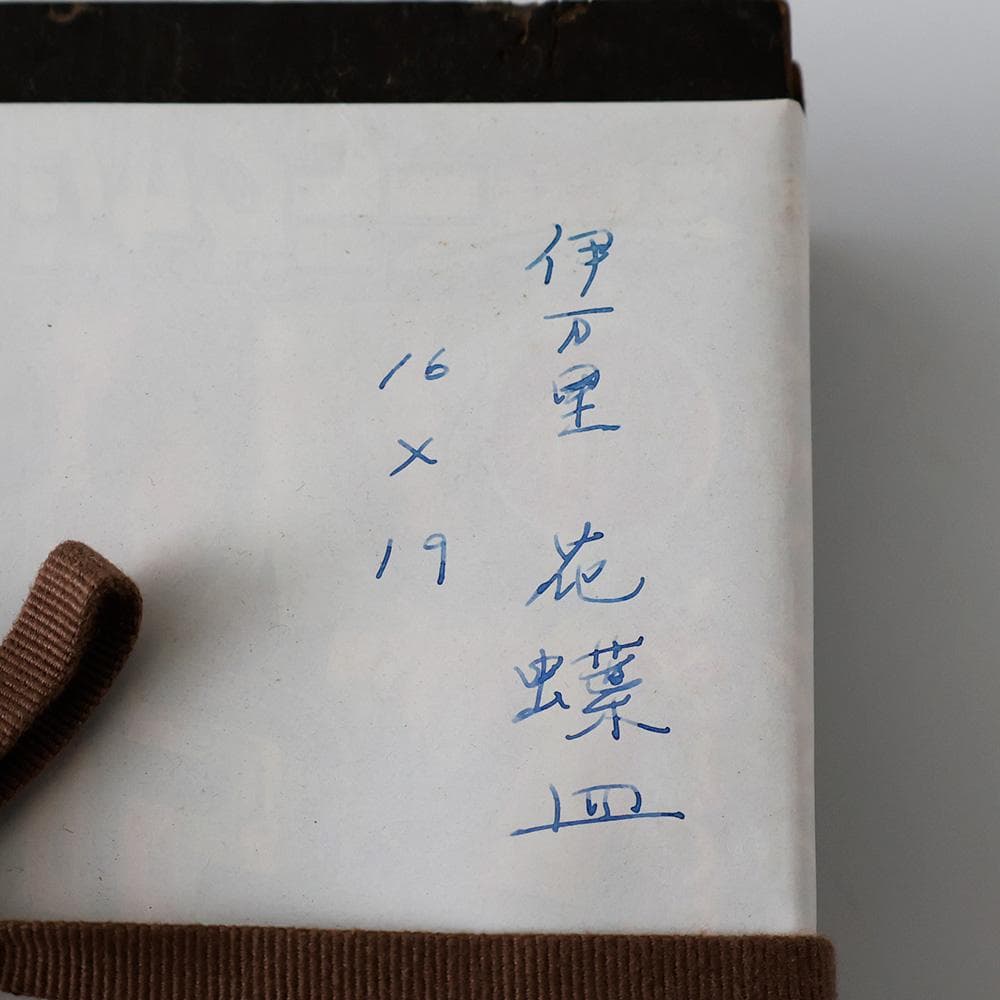 伊万里 花蝶皿
16×19